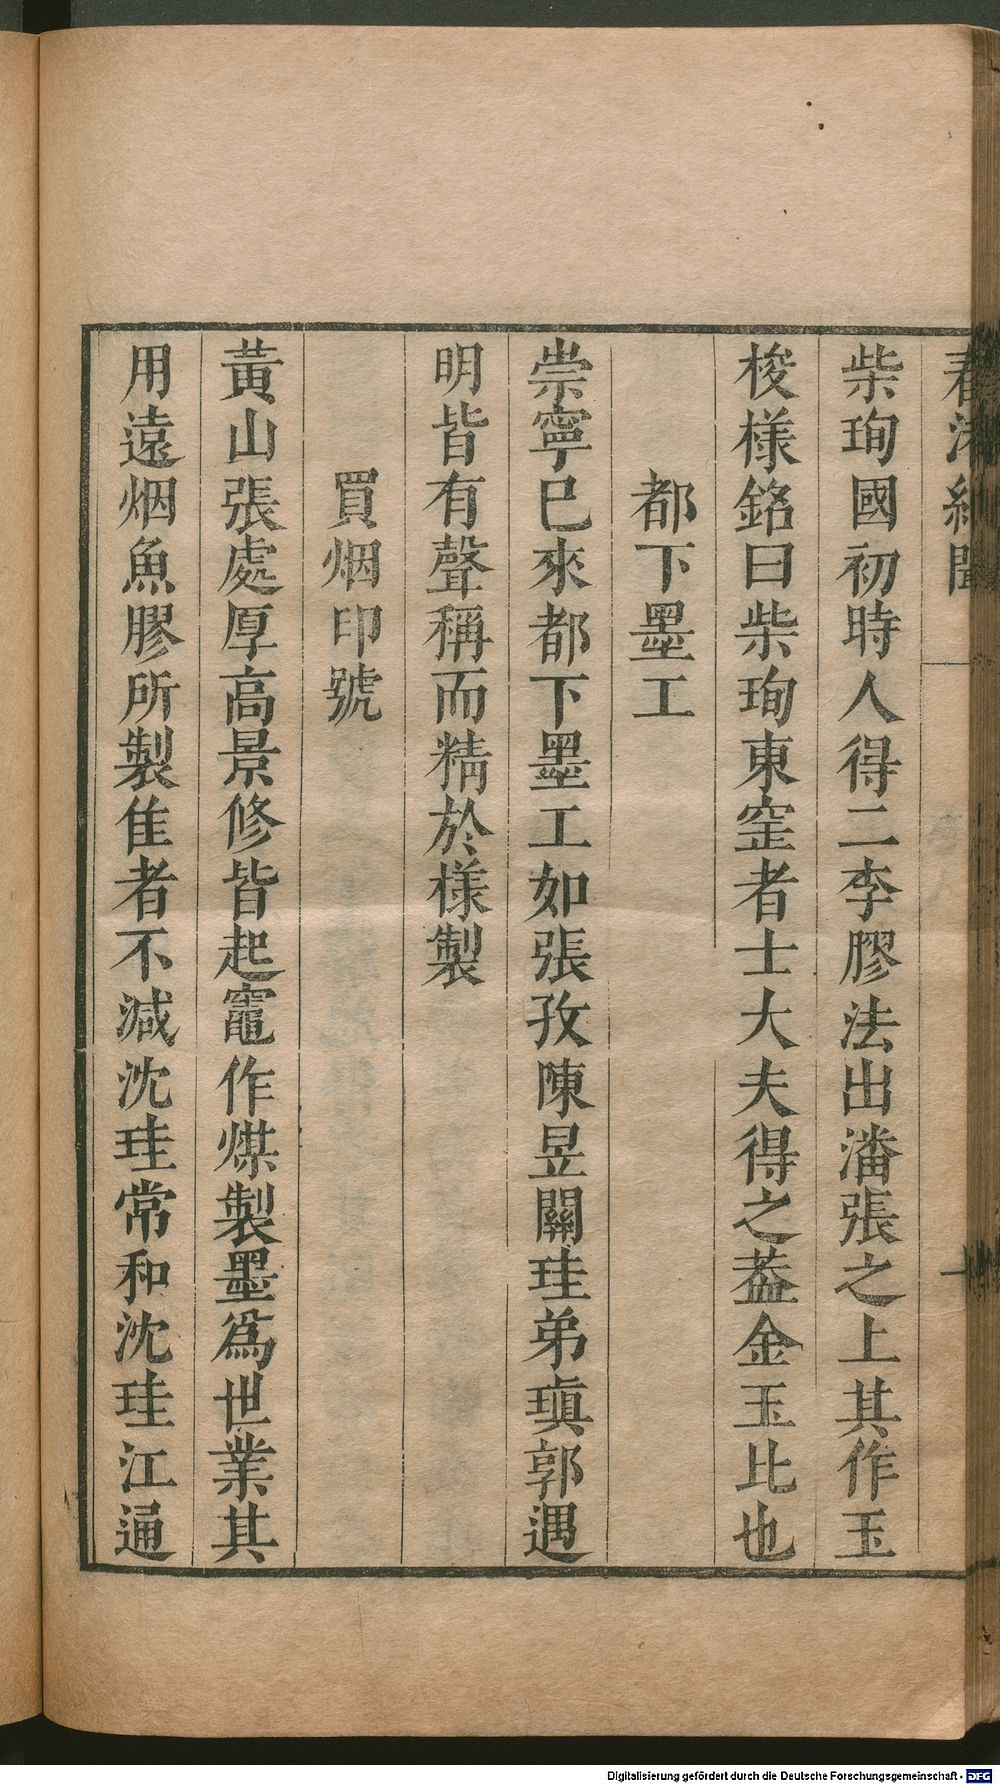 春渚紀聞
柴珣國初時人得二李膠法出潘張之上其作玉
梭樣銘曰柴珣東窑者士大夫得之葢金玉比也
都下墨工
崇寧已來都下墨工如張孜陳昱關珪弟瑱郭遇
明皆有聲稱而精於樣製
買烟印號
黃山張處厚高景修皆起竈作煤製墨爲世業其
用遠烟魚膠所製佳者不減沈珪常和沈珪江通
Digitalisierung gefördert durch die Deutsche Forschungsgemeinschaft - DFG